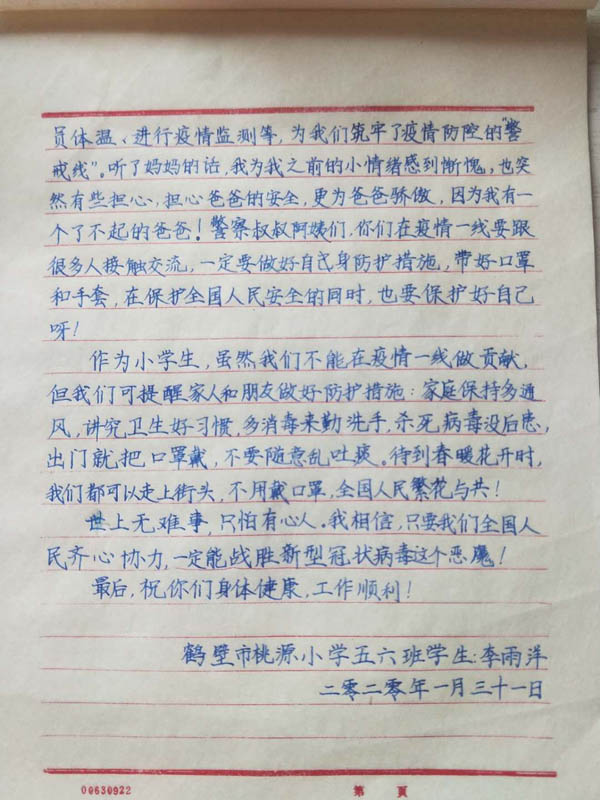 员体温、进行疫情监测等，为我们筑牢了疫情防控的“警
戒线”。听了妈妈的话，我为我之前的小情绪感到惭愧，也突
然有些担心，担心爸爸的安全，更为爸爸骄傲，因为我有一
个了不起的爸爸！警察叔叔阿姨们，你们在疫情一线要跟
很多人接触交流，一定要做好自己身防护措施，带好口罩
和手套，在保护全国人民安全的同时，也要保护好自己
呀！
作为小学生，虽然我们不能在疫情一线做贡献，
但我们可提醒家人和朋友做好防护措施：家庭保持多通
风，讲究卫生好习惯，多消毒来勤洗手，杀死病毒没后患，
出门就把口罩戴，不要随意乱吐痰。待到春暖花开时，
我们都可以走上街头，不用戴口罩，全国人民繁花与共！
世上无难事，只怕有心人。我相信，只要我们全国人
民齐心协力，一定能战胜新型冠状病毒这个恶魔！
最后，祝你们身体健康，工作顺利！
鹤壁市桃源小学五六班学生：李雨洋
二零二零年一月三十一日
00630922 第 頁